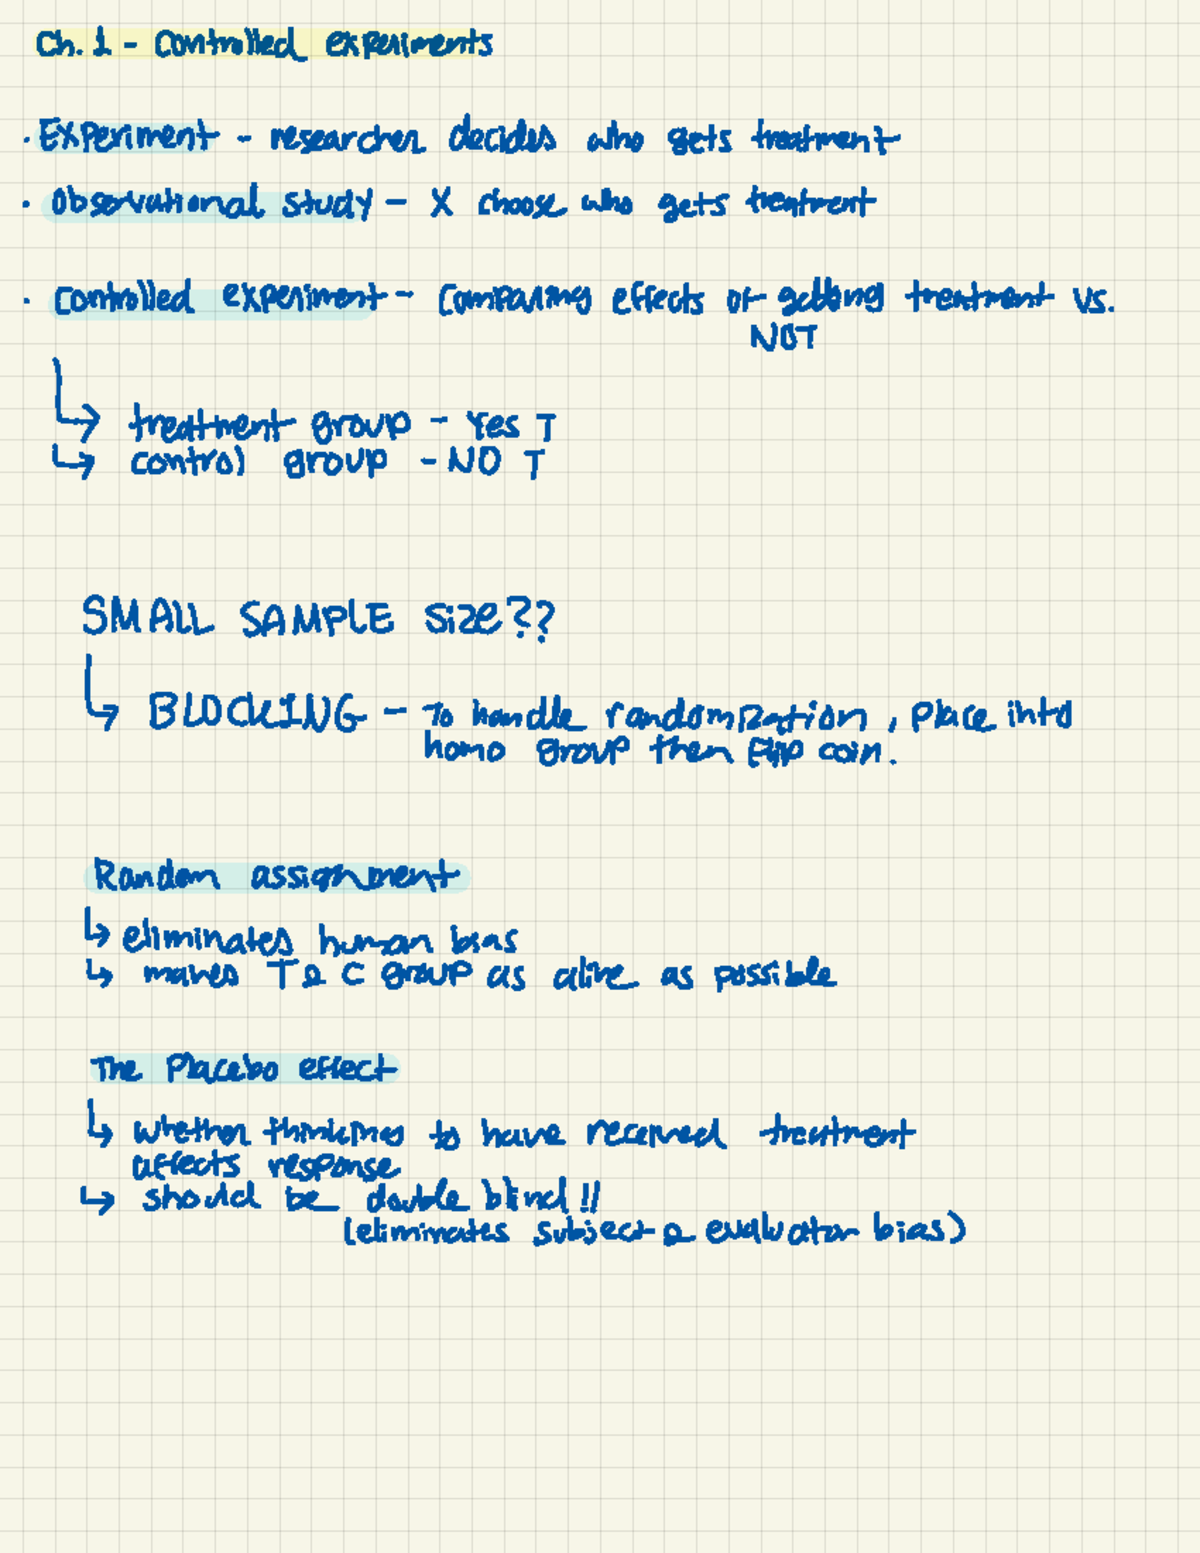 Ch. 1 - Controlled experiments
· Experiment - researcher decides who gets treatment
· Observational study - X choose who gets treatment
· Controlled experiment - Comparing effects of getting treatment vs.
NOT
↳ treatment group - Yes T
↳ control group - NO T
SMALL SAMPLE Size??
↳ BLOCKING - To handle randomization, place into
homo group then flip coin.
Random assignment
↳ eliminates human bias
↳ makes T & C group as alike as possible
The Placebo effect
↳ whether thinking to have received treatment
affects response
↳ should be double blind!!
(eliminates subject & evaluator bias)